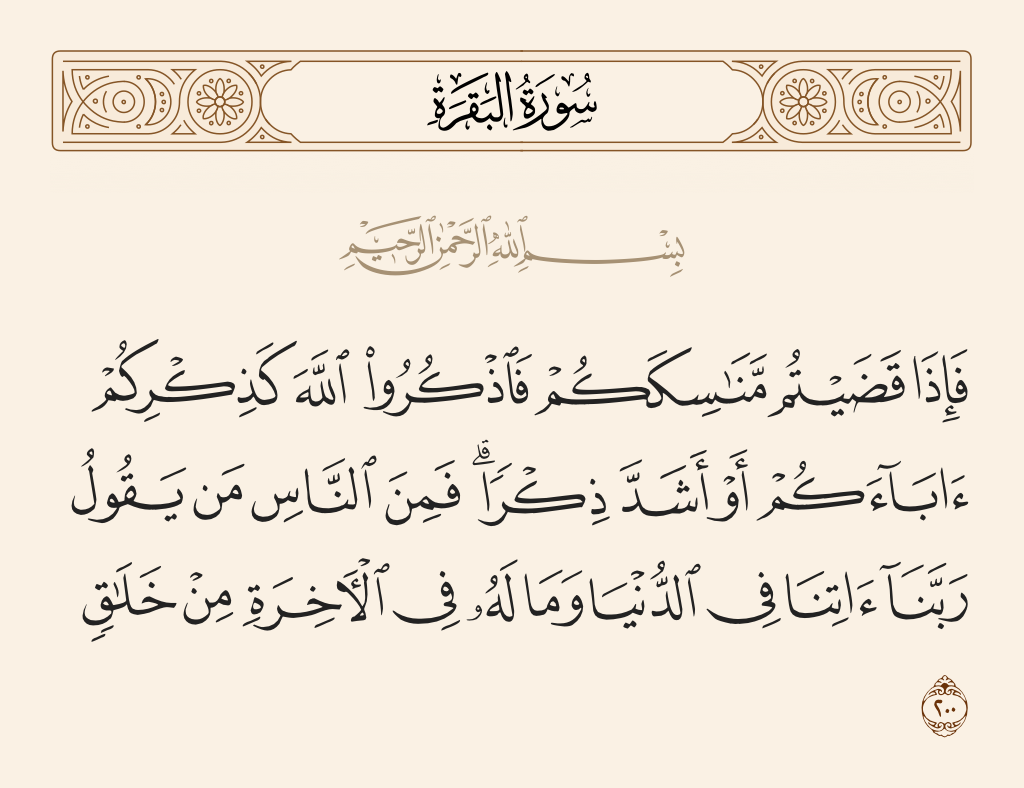 سُورَةُ البَقَرَةِ
بِسْمِ ٱللَّهِ ٱلرَّحْمَٰنِ ٱلرَّحِيمِ
فَإِذَا قَضَيْتُم مَّنَٰسِكَكُمْ فَٱذْكُرُوا۟ ٱللَّهَ كَذِكْرِكُمْ
ءَابَآءَكُمْ أَوْ أَشَدَّ ذِكْرًا ۗ فَمِنَ ٱلنَّاسِ مَن يَقُولُ
رَبَّنَآ ءَاتِنَا فِى ٱلدُّنْيَا وَمَا لَهُۥ فِى ٱلْأَخِرَةِ مِنْ خَلَٰقٍ
٢٠٠